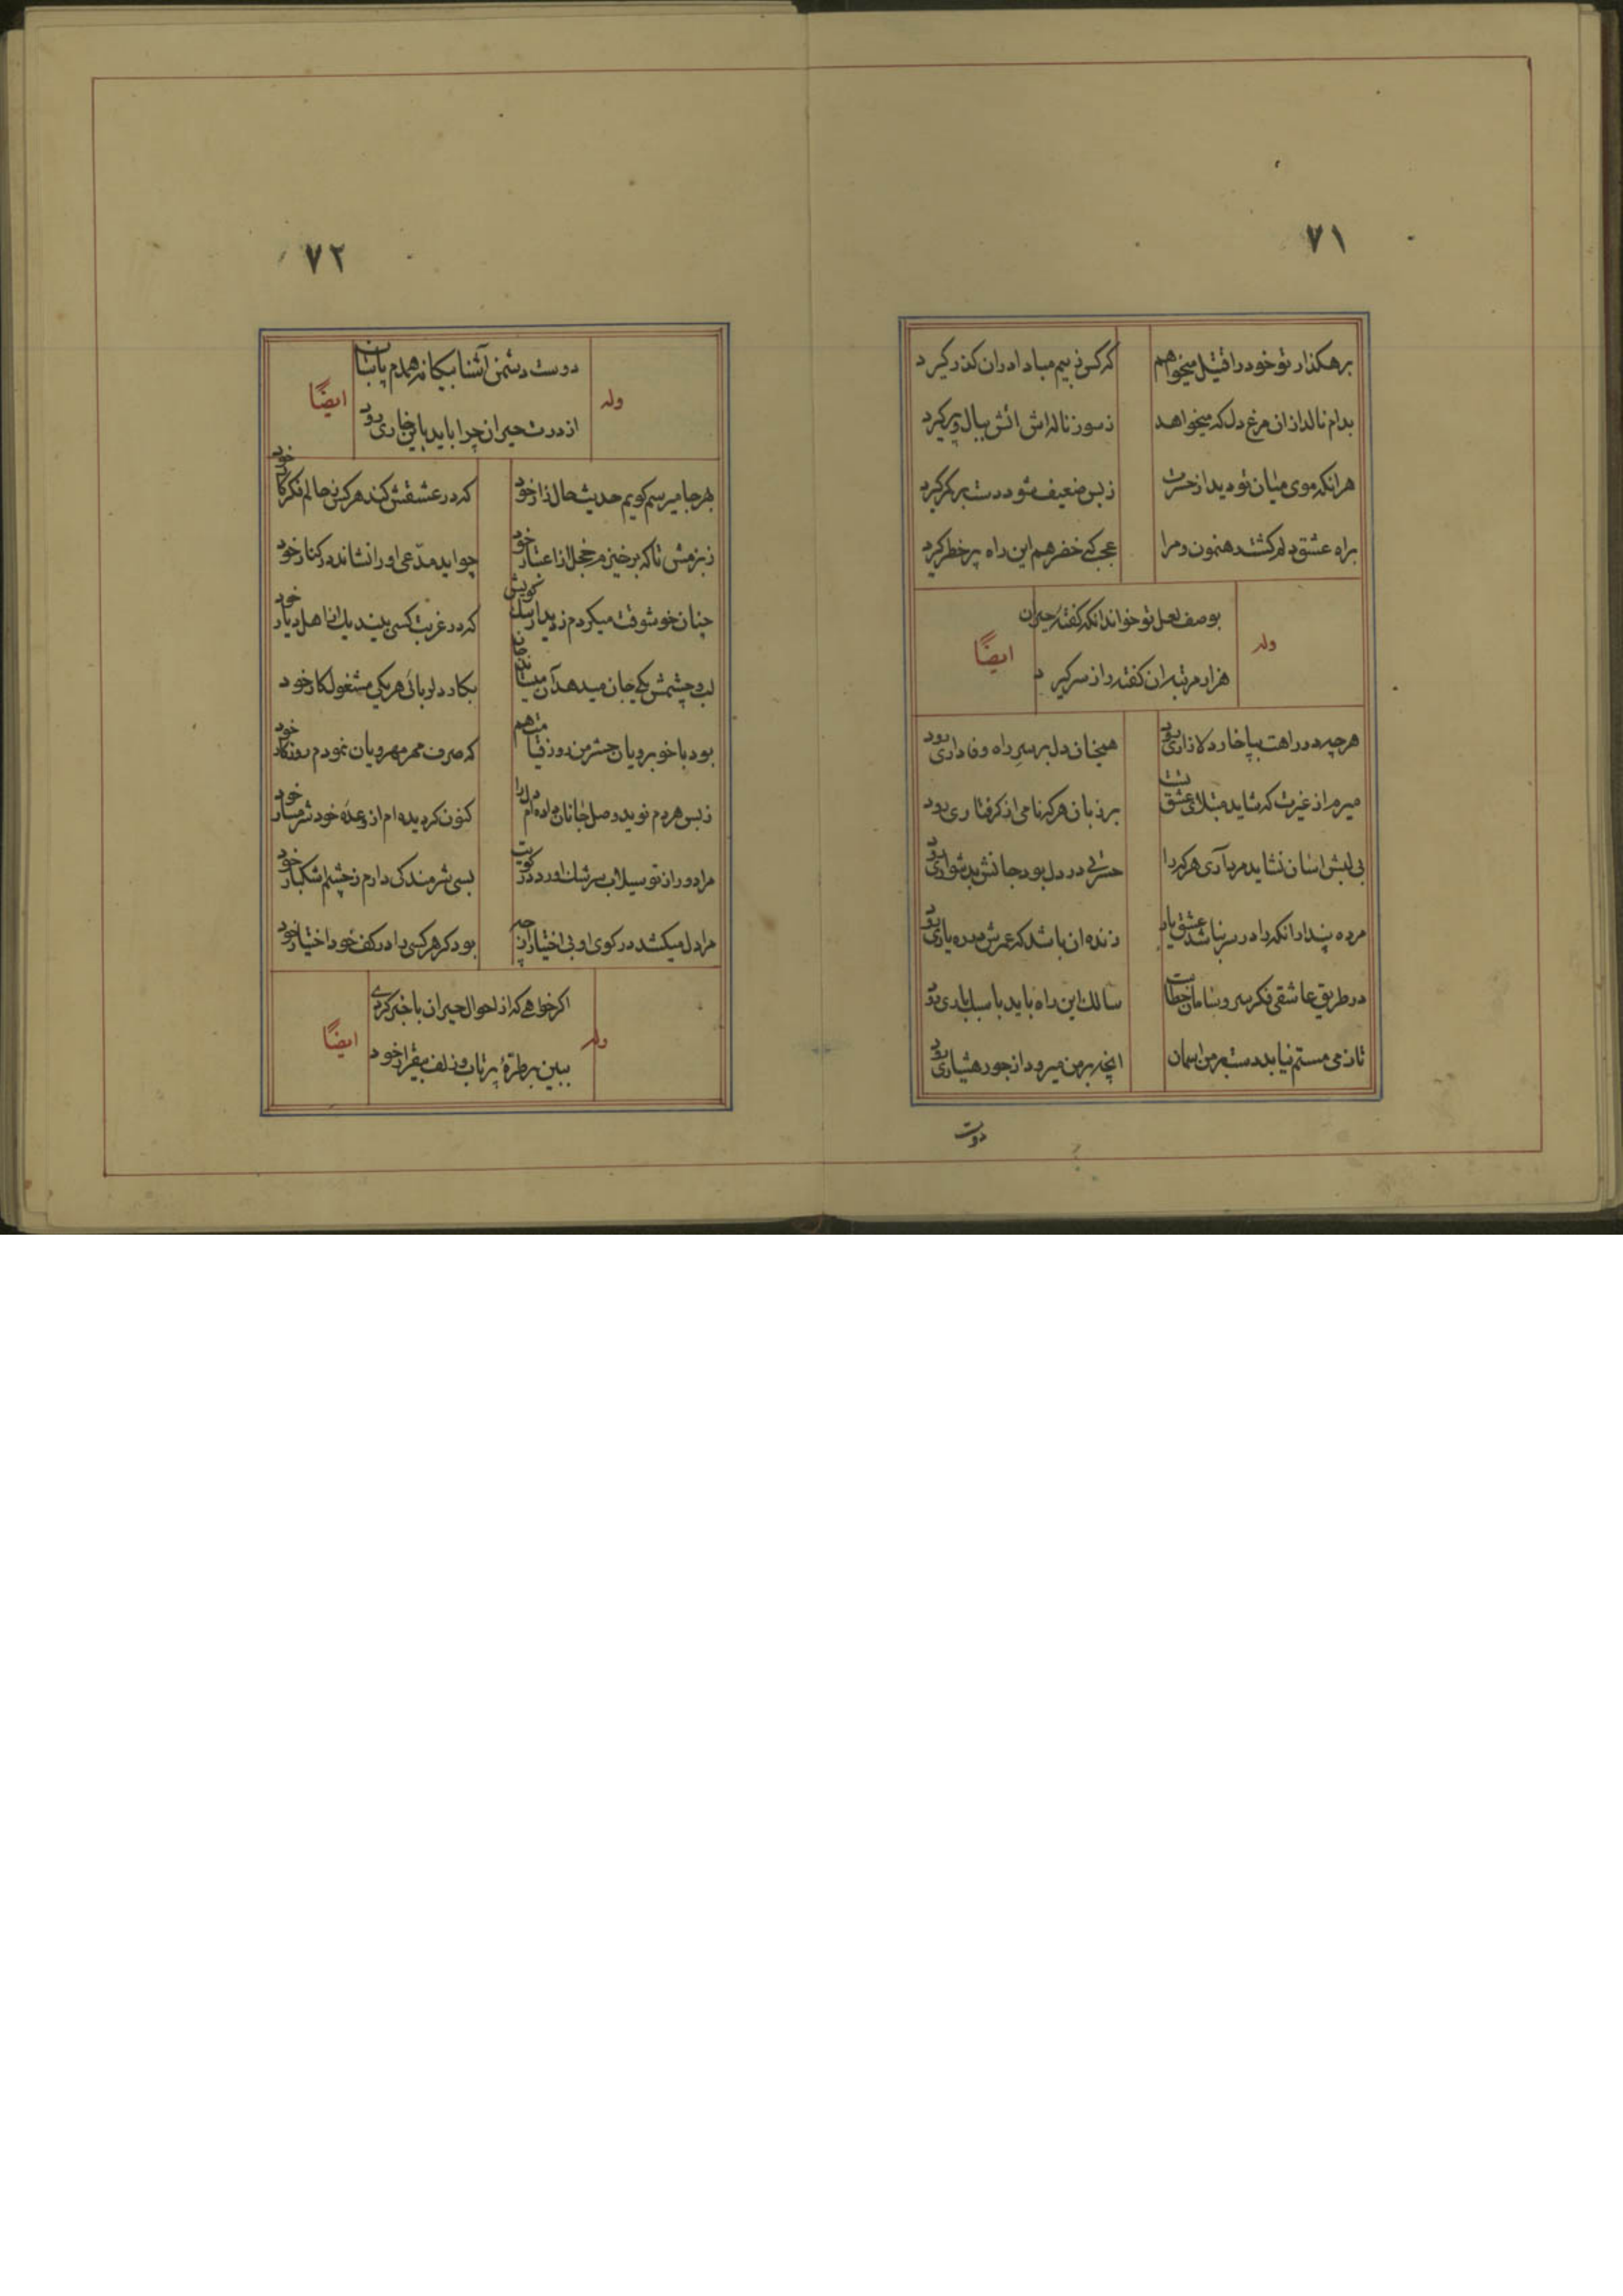 ۷۱
برهکذار تو خود را قتیل میخواهم
که کس ز بیم مبادا دران کذر کیرد
بدام نالد ازان مرغ دل که میخواهد
ز سوز ناله اش اتش ببال و پر کیرد
هرانکه موی میان تو دید از حسرت
ز بس ضعیف شود دست بر کمر کیرد
براه عشق دلم کشته رهنمون و مرا
عجب که خضر هم این راه پر خطر کیرد
وله
بوصف لعل تو خواند انکه کفتهٔ حیران
هزار مرتبه ان کفته را ز سر کیرد
ایضاً
هرچه در راهت بپا خار دلازاری بود
همچنان دل بر سرِ راه وفاداری بود
میرم از غیرت که شاید مبتلای عشق تست
بر زبان هر که نامی از کرفتاری بود
بی لبش اسان نشاید مرد آری هر که را
حسرتی در دل بود جانش بدشواری بود
مرده پندار انکه را در سر نباشد عشق یار
زنده ان باشد که عمرش در ره یاری بود
در طریق عاشقی فکر سر و سامان خطاست
سالک این راه باید با سبکباری بود
تا ز می مستم نیابد دست بر من اسمان
انچه بر من میرود از جور هشیاری بود
دوست
۷۲
وله
دوست دشمن آشنا بیکانه همدم پاسبان
از درت حیران چرا باید باین خاری رود
ایضاً
بهر جا میرسم کویم حدیث حال زار خود
که در عشقش کند هر کس ز حالم فکر کار خود
ز بزمش تا که برخیزم خجل از اعتبار خود
چو اید مدّعی او را نشاند در کنار خود
چنان خوشوقت میکردم ز دیدار سک کویش
که در غربت کسی بیند یکی از اهل دیار خود
لب و چشمش یکی جان میدهد آن میستاند جان
بکار دلربائی هر یکی مشغول کار خود
بود با خوبرویان حشر من روز قیامت هم
که صرف مهر مهرویان نمودم روزکار خود
ز بس هر دم نوید وصل جانان داده ام دل را
کنون کردیده ام از وعدهٔ خود شرمسار خود
مرا دور از تو سیلاب سرشک اورد در کویت
بسی شرمندکی دارم ز چشم اشکبار خود
مرا دل میکشد در کوی او بی اختیار ارنه
بود کر هر کسی را در کف خود اختیار خود
وله
اکر خواهی که از احوال حیران با خبر کردی
ببین بر طرهٔ پر تاب و زلف بیقرار خود
ایضاً